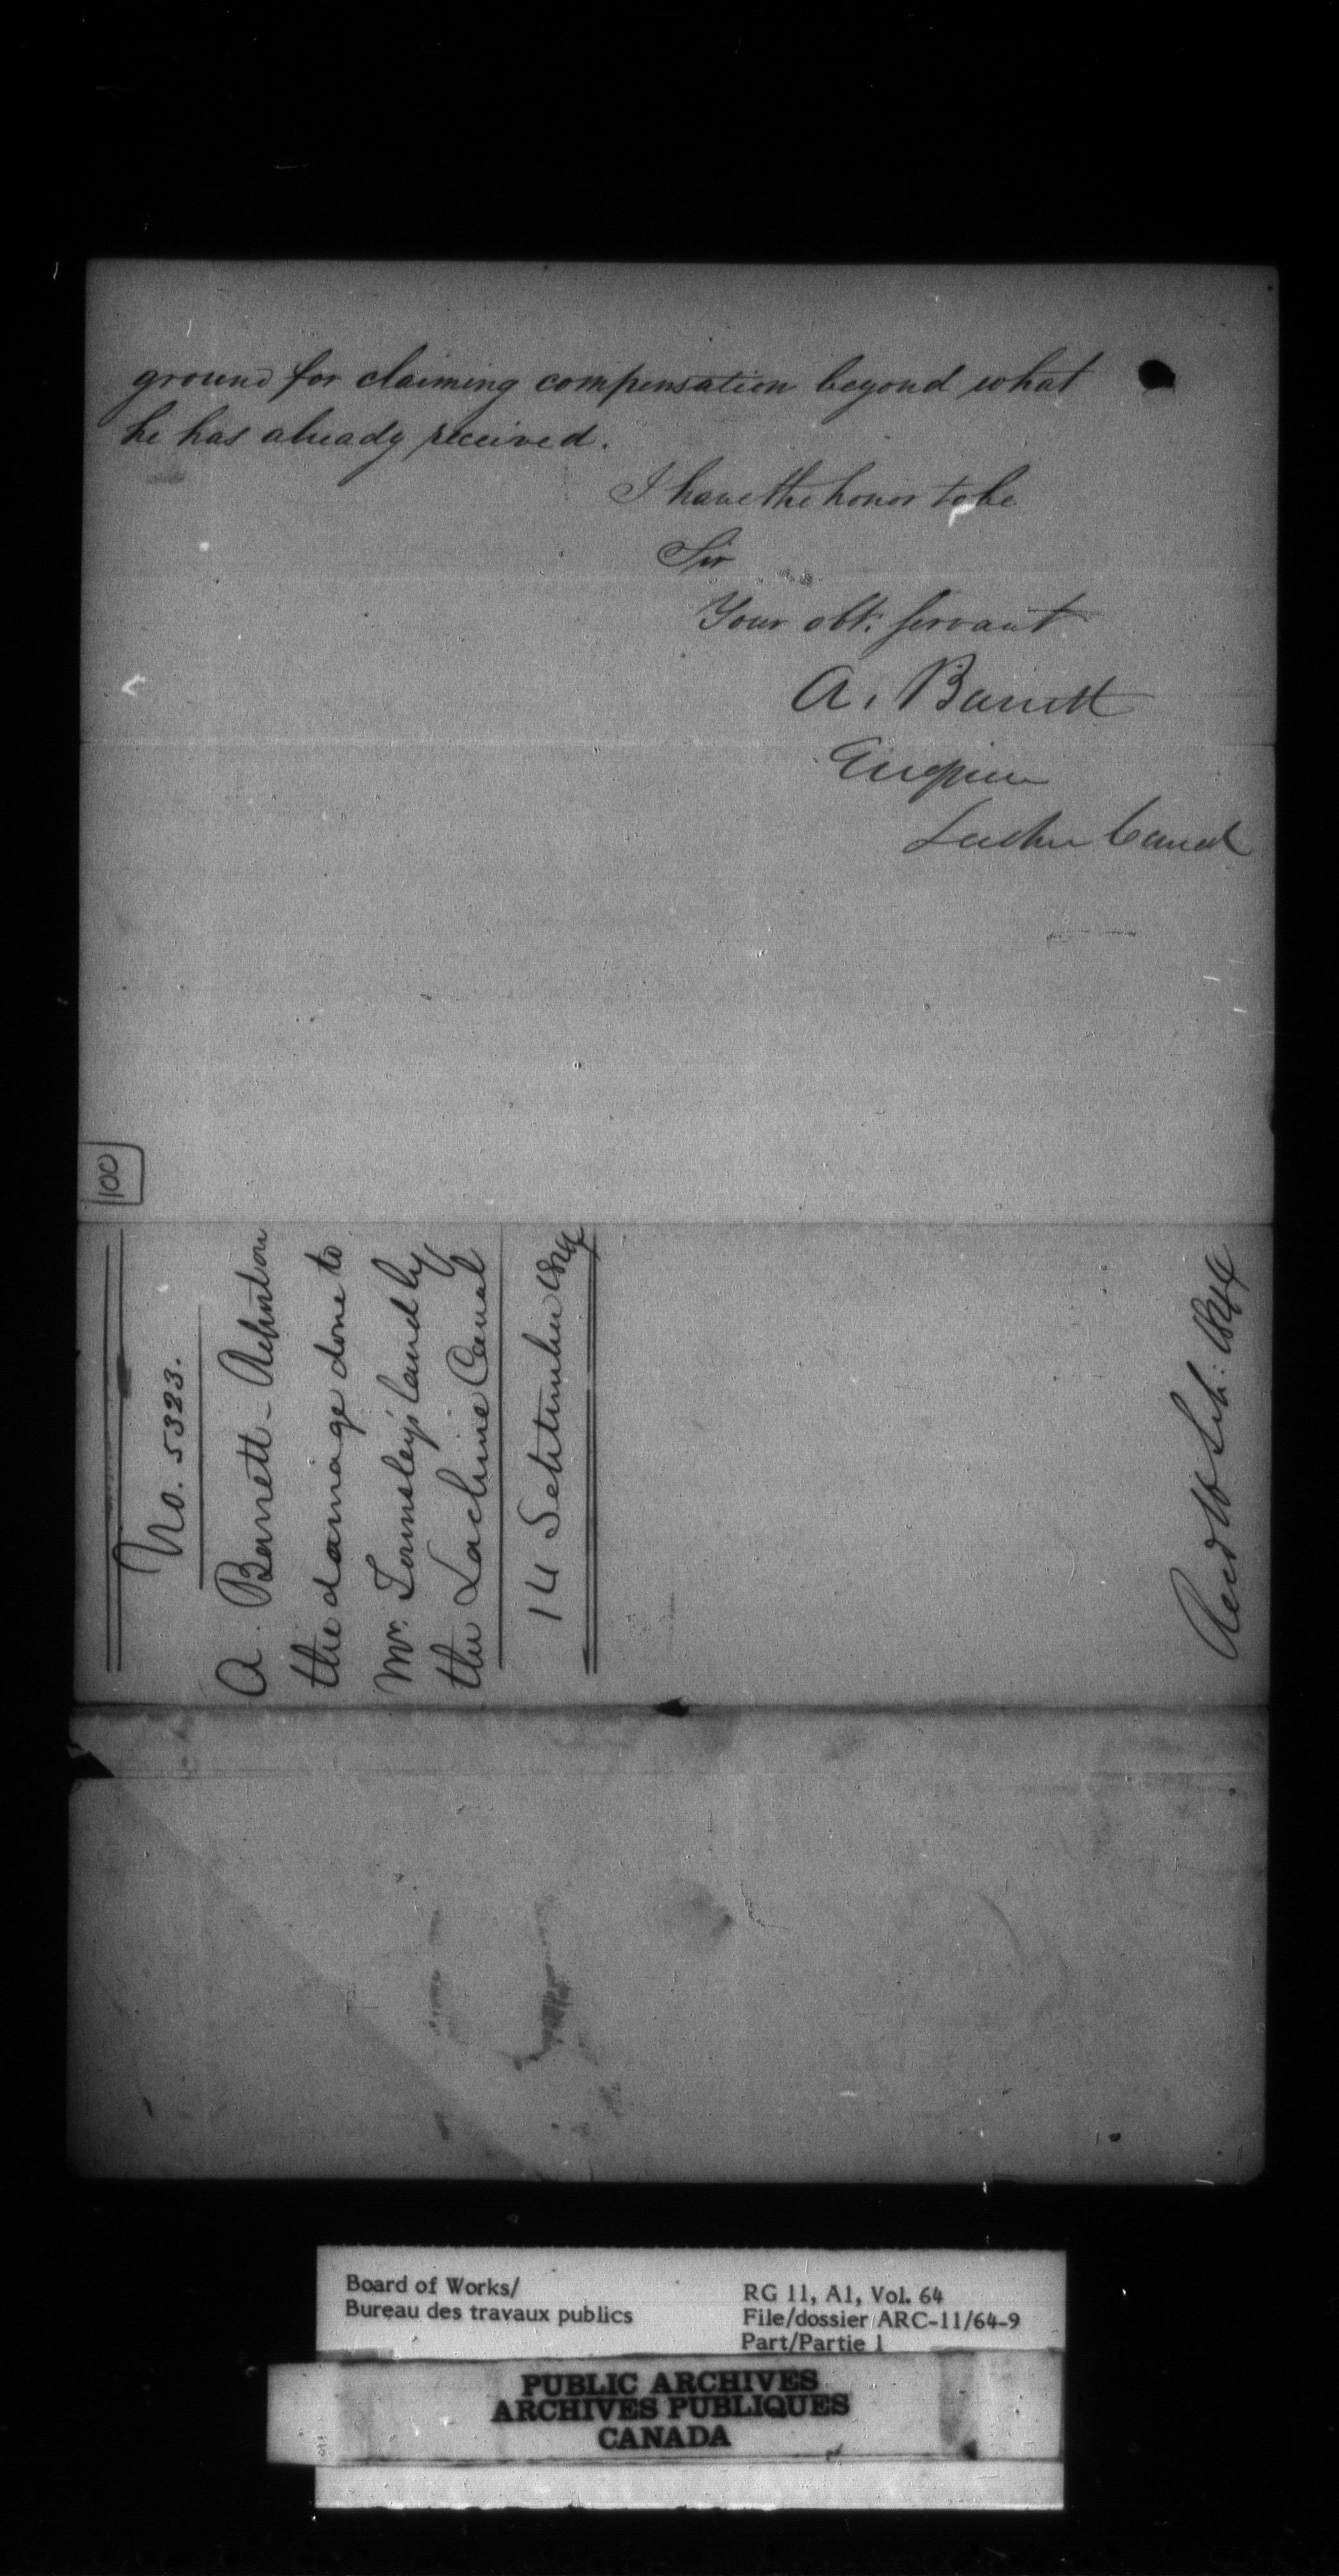 ground for claiming compensation beyond what
he has already received.
I have the honor to be
Sir
Your obt. servant
A. Barrett
Engineer
Lachine Canal
100
No. 5323.
A. Barrett - 
the damage done to
Mr. Townsley's land by
the Lachine Canal
14 September 1844
Recd 16 Sep: 1844
Board of Works/
Bureau des travaux publics
RG 11, A1, Vol. 64
File/dossier ARC-11/64-9
Part/Partie 1
PUBLIC ARCHIVES
ARCHIVES PUBLIQUES
CANADA